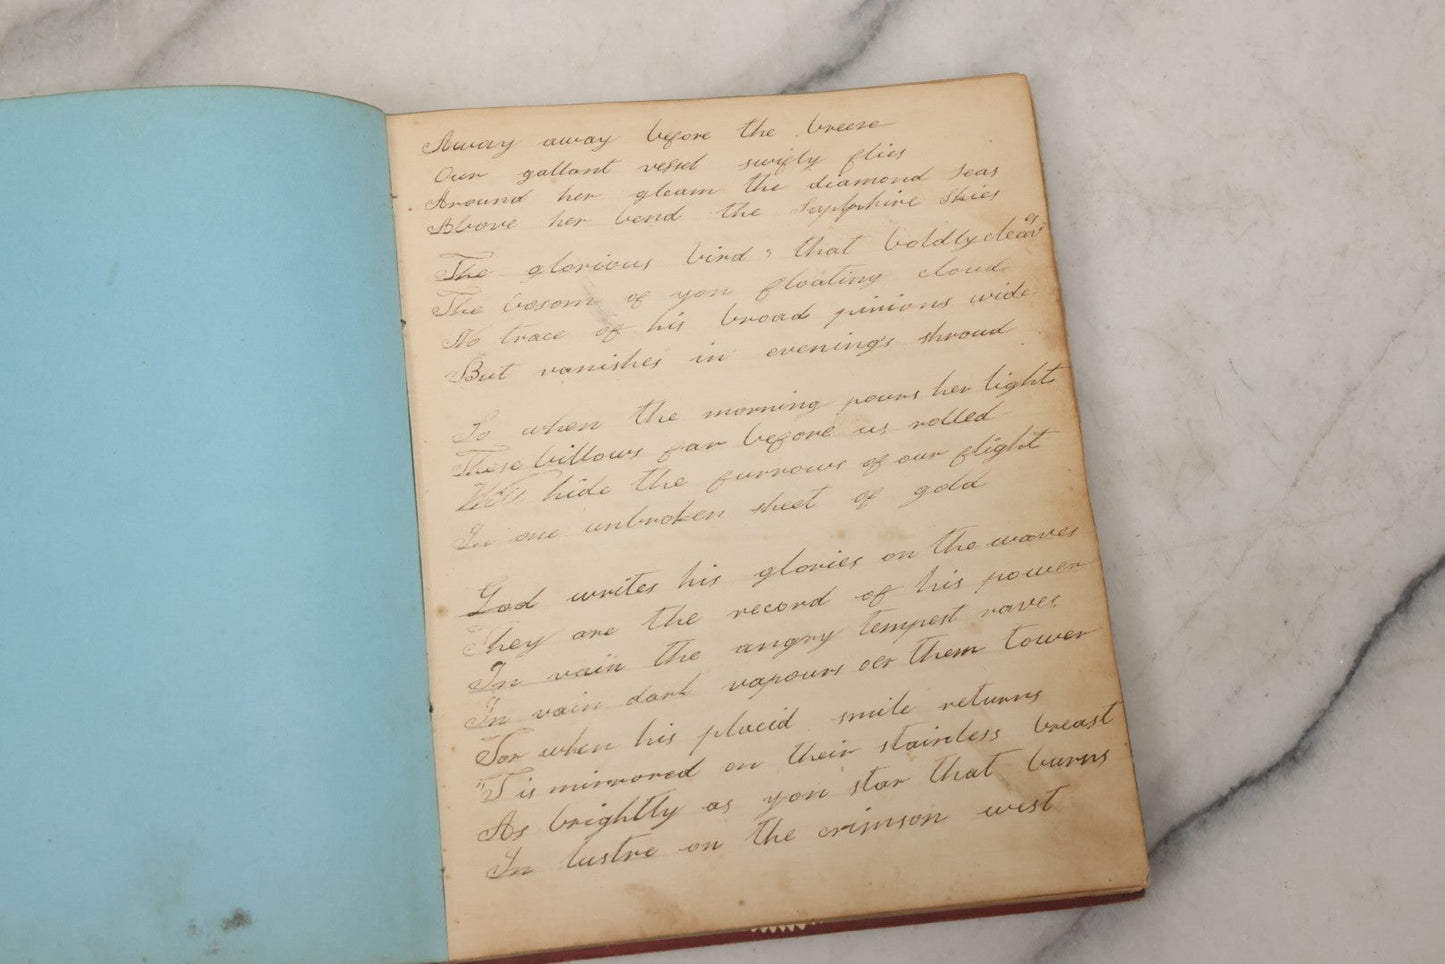 Away away before the breeze
Our gallant vessel swifly flies
Around her gleam the diamond seas
Above her bend the Sapphire Skies
The glorious bird, that boldly cleaves
The bosom of yon floating cloud
No trace of his broad pinions wide
But vanishes in evenings shroud
So when the morning pours her light
These billows far before us rolled
Will hide the furrows of our flight
In one unbroken sheet of gold
God writes his glories on the waves
They are the record of his power
In vain the angry tempest raves
In vain dark vapours oer them tower
For when his placid smile returns
'Tis mirrored on their stainless breast
As brightly as yon star that burns
In lustre on the crimson west